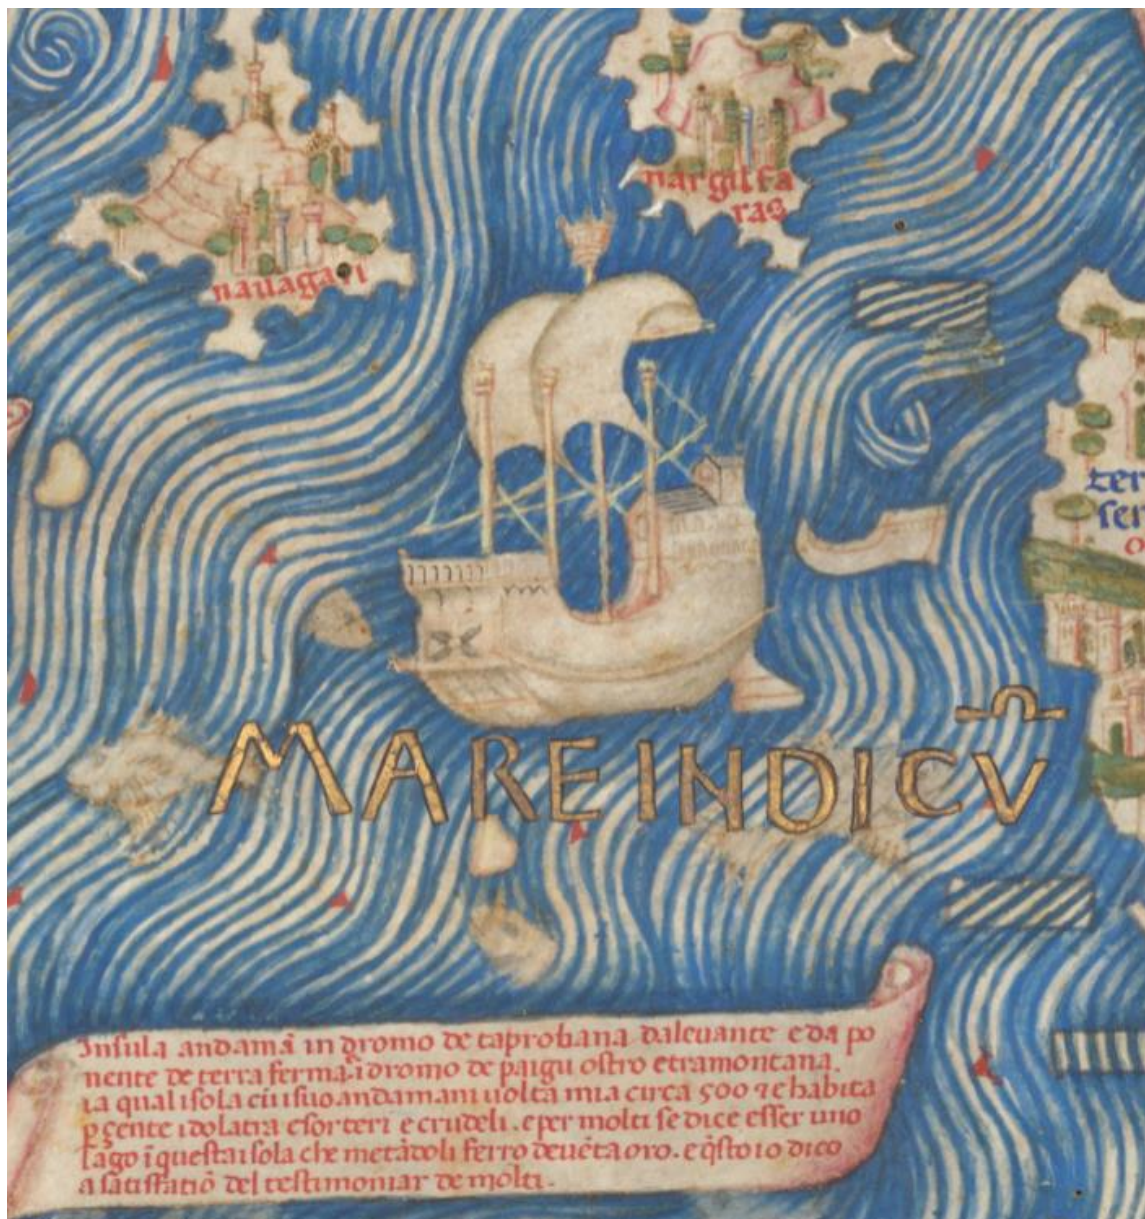 navagari
nargil fa
ras
ter
ser
o
MARE INDICV̄
Insula andamã in dromo de taprobana dalevante e da po
nente de terra ferma. ĩ dromo de paigu ostro e tramontana.
la qual isola ciusuo andamani volta mia circa 500 ⁊ e habita
p gente idolatra e sorteri e crudeli. e per molti se dice esser uno
lago ĩ questa isola che metãdoli ferro devẽta oro. e q̃sto io dico
a satisfatiõ del testimoniar de molti.